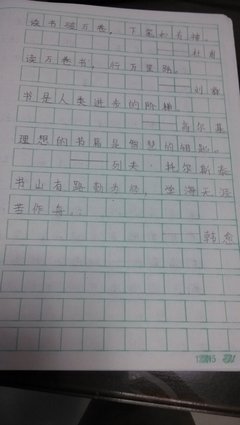 读书破万卷，下笔如有神
——杜甫
读万卷书，行万里路。
——刘彝
书是人类进步的阶梯
——高尔基
理想的书籍是智慧的钥匙。
——列夫·托尔斯泰
书山有路勤为径，学海无涯
苦作舟。
——韩愈